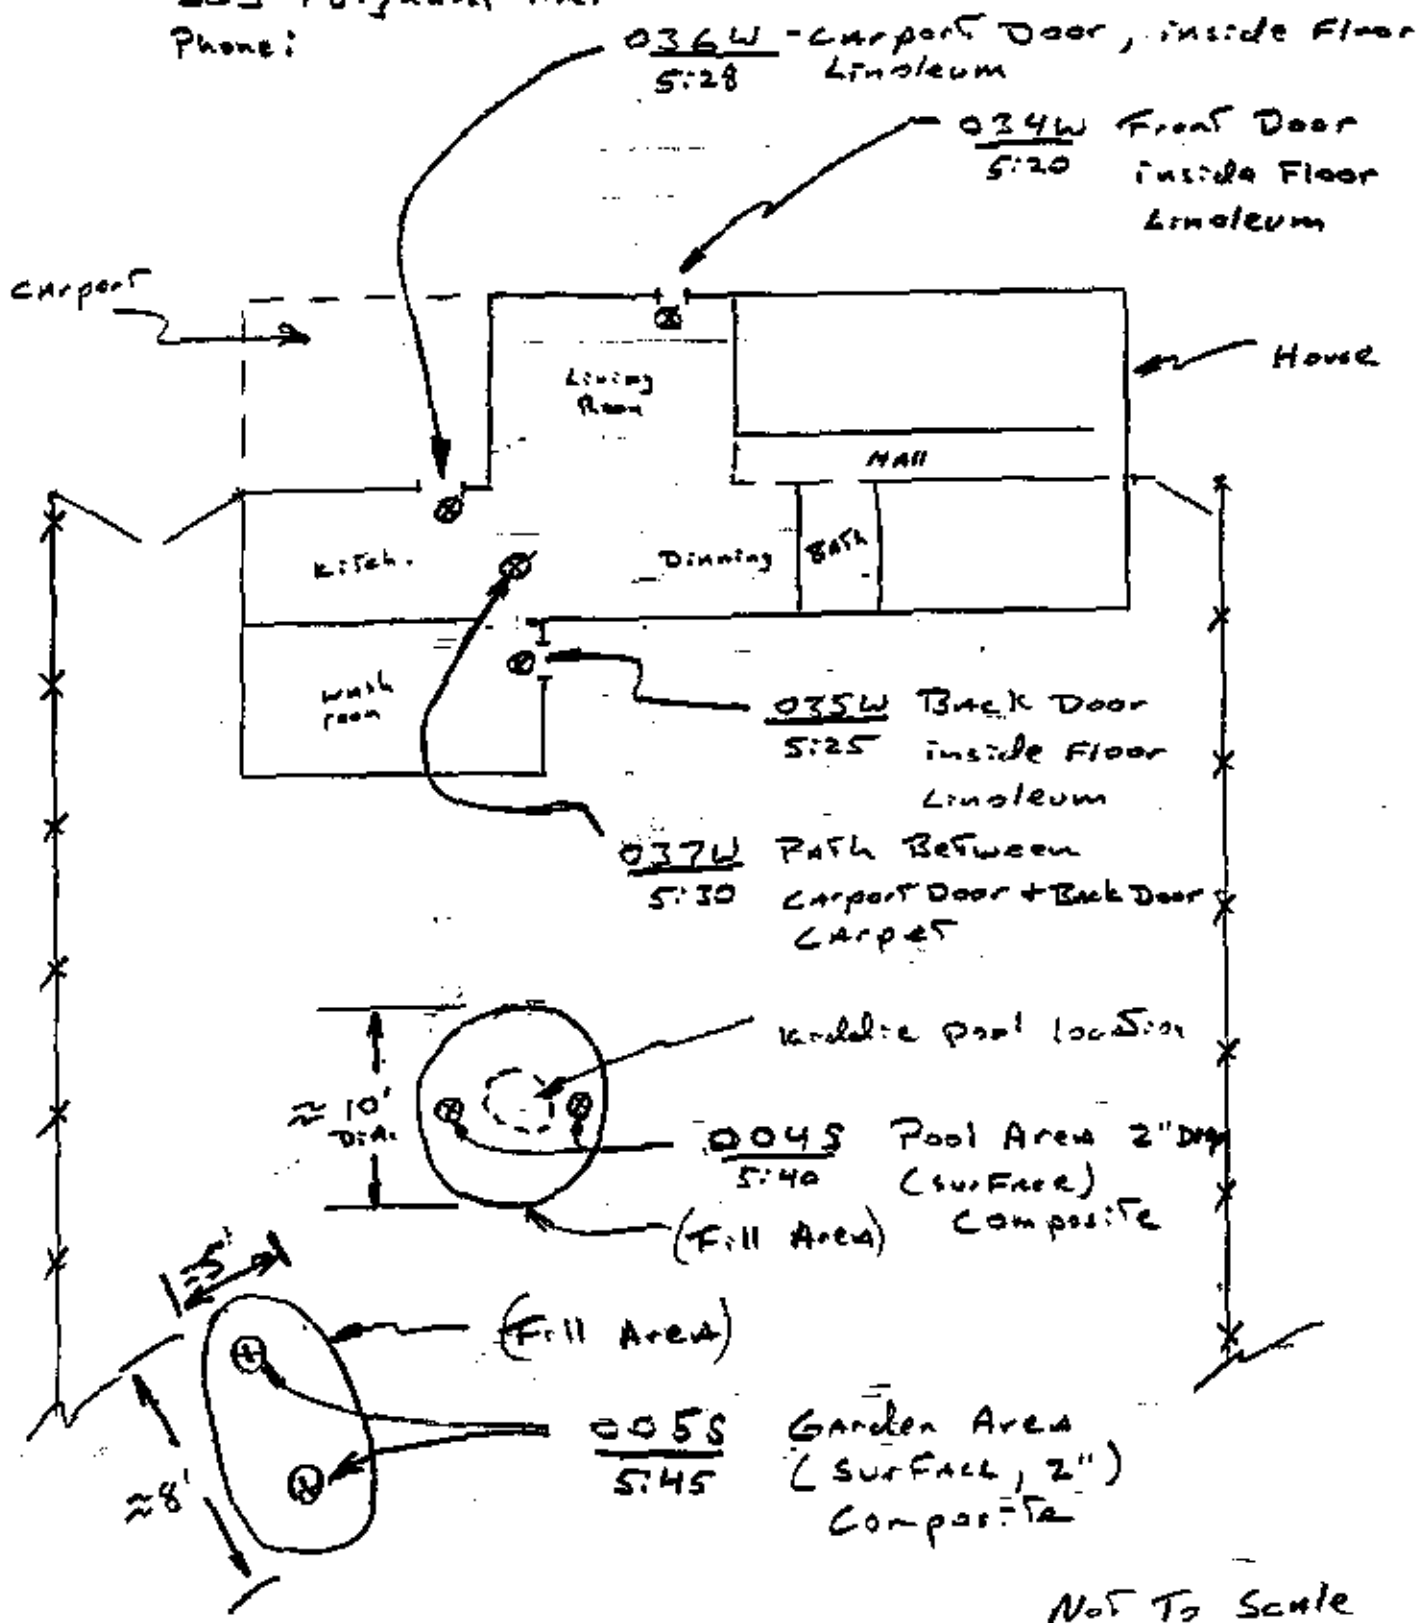 Phone:
036W - Carport Door, inside Floor
5:28 Linoleum
034W Front Door
5:20 inside Floor
Linoleum
Carport
House
Living
Room
Hall
Kitch.
Dinning
Bath
wash
room
035W Back Door
5:25 inside Floor
Linoleum
037W Path Between
5:30 Carport Door + Back Door
Carpet
Kiddie pool location
≈ 10'
DIA.
004S Pool Area 2"
5:40 (surface)
Composite
(Fill Area)
≈5'
(Fill Area)
005S Garden Area
5:45 (Surface, 2")
Composite
≈8'
Not To Scale